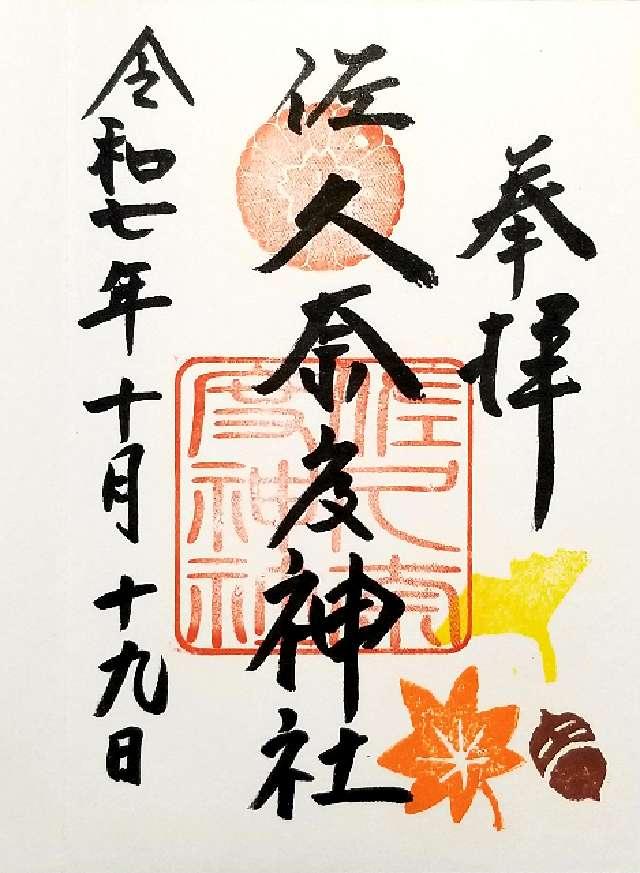 奉拝
佐久奈度神社
令和七年十月十九日
佐久奈度神社